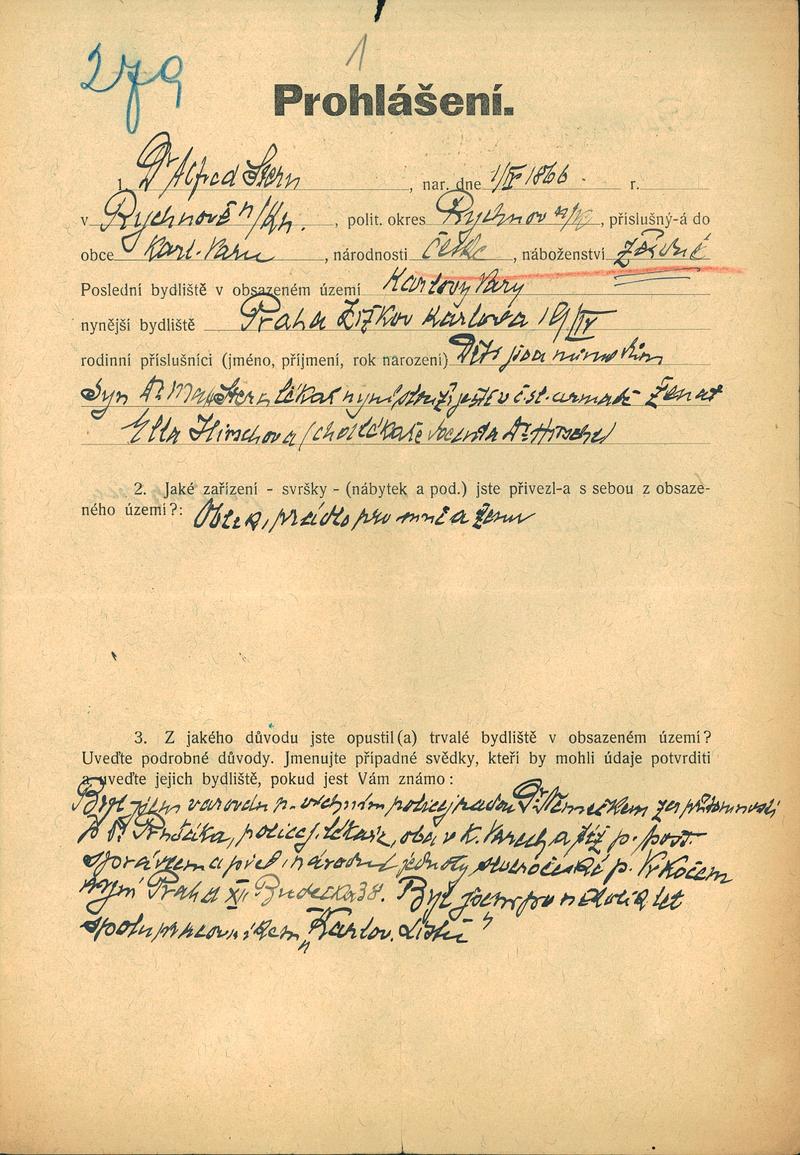 279
1
Prohlášení.
1. Dr Alfred Stern, nar. dne 1/IX 1866. r.
v Rychnově n/Kn., polit. okres Rychnov n/K, příslušný-á do
obce Karl. Vary, národnosti české, náboženství židovské
Poslední bydliště v obsazeném území Karlovy Vary
nynější bydliště Praha Žižkov Karlova 19/IV
rodinní příslušníci (jméno, příjmení, rok narození) Děti jsou mimo dům
Syn Dr Max Stern lékař nyní slouží ještě v čsl. armadě ženat
Ella Hirschova (choť lékaře Docenta Dr Hirsche)
2. Jaké zařízení - svršky - (nábytek a pod.) jste přivezl-a s sebou z obsaze-
ného území?: Oblek, prádlo pro mně a ženu
3. Z jakého důvodu jste opustil(a) trvalé bydliště v obsazeném území?
Uveďte podrobné důvody. Jmenujte případné svědky, kteří by mohli údaje potvrditi
a uveďte jejich bydliště, pokud jest Vám známo:
Byl jsem varován p. vrchním policej. radou Dr Němečkem za přítomnosti
p. Dr, policej. lékaře, oba v K. Varech, a též p. pošt.
správcem a před. národní jednoty severočeské p. Vrkočem
nyní Praha XII 38. Byl jsem po několik let
spolupracovníkem „Karlov. Listů"